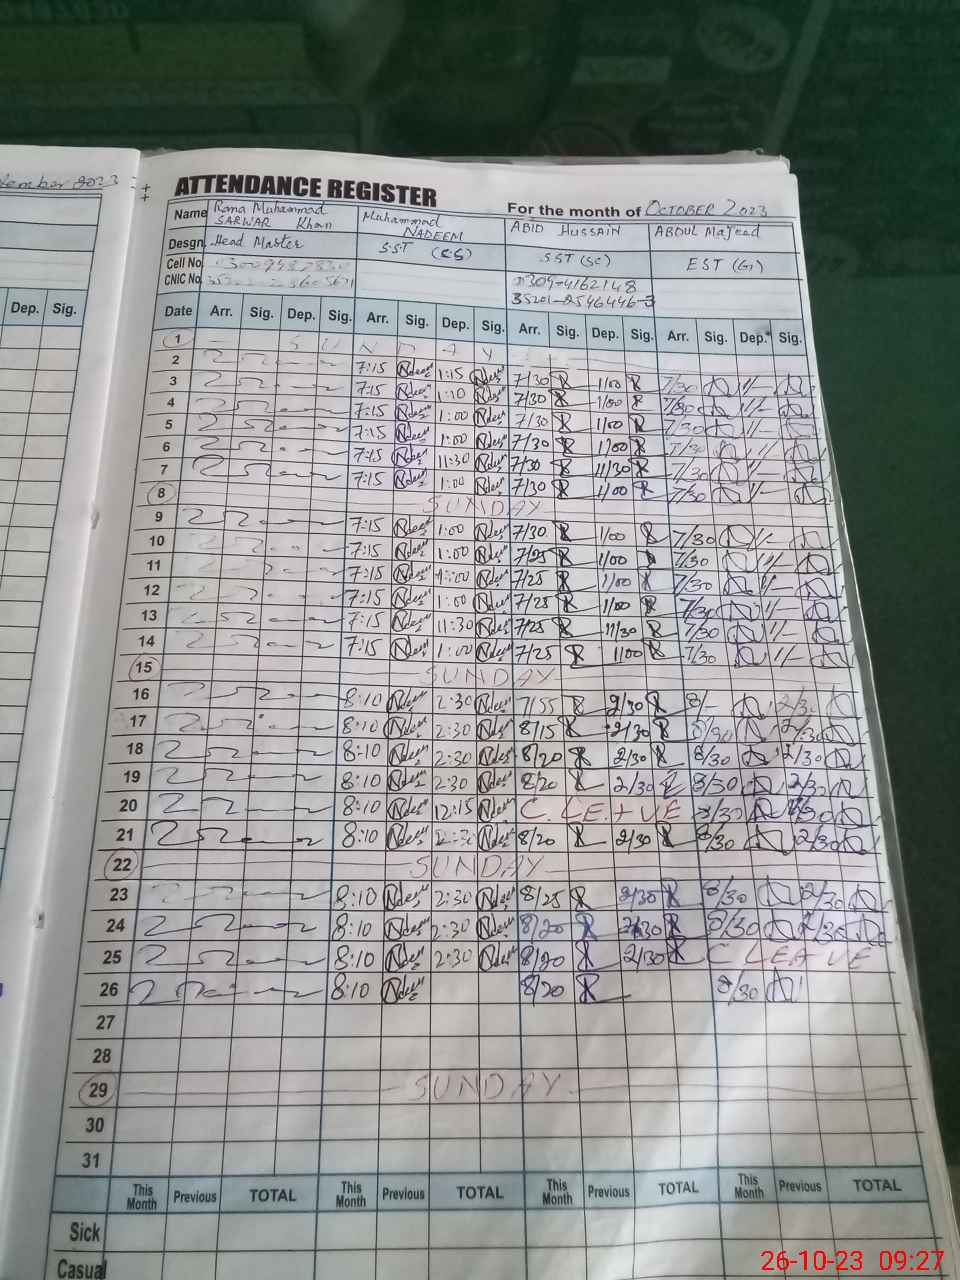 2023
ATTENDANCE REGISTER
For the month of OCTOBER 2023
Name Rana Muhammad SARWAR Khan Muhammad NADEEM ABID HUSSAIN ABDUL Majeed
Desgn. Head Master SST (CS) SST (SC) EST (G)
Cell No. 0309-4162148
CNIC No. 35201-2546446-3
Dep. Sig. Date Arr. Sig. Dep. Sig. Arr. Sig. Dep. Sig. Arr. Sig. Dep. Sig. Arr. Sig. Dep. Sig.
1 SUNDAY
2 7:15 1:15 7/30 1/00 7/30 1/-
3 7:15 1:10 7/30 1/00 7/30 1/-
4 7:15 1:00 7/30 1/00 7/30 1/-
5 7:15 1:00 7/30 1/00 7/30 1/-
6 7:15 11:30 7/30 11/30 7/30 1/-
7 7:15 1:00 7/30 1/00 7/30 1/-
8 SUNDAY
9 7:15 1:00 7/30 1/00 7/30 1/-
10 7:15 1:00 7/25 1/00 7/30 1/-
11 7:15 1:00 7/25 1/00 7/30 1/-
12 7:15 1:00 7/25 1/00 7/30 1/-
13 7:15 11:30 7/25 11/30 7/30 1/-
14 7:15 1:00 7/25 1/00 7/30 1/-
15 SUNDAY
16 8:10 2:30 7/55 2/30 8/- 2/30
17 8:10 2:30 8/15 2/30 8/30 2/30
18 8:10 2:30 8/20 2/30 8/30 2/30
19 8:10 2:30 8/20 2/30 8/30 2/30
20 8:10 12:15 C. LEAVE 8/30
21 8:10 8/20 2/30 8/30 2/30
22 SUNDAY
23 8:10 2:30 8/25 2/30 8/30 2/30
24 8:10 2:30 8/20 2/30 8/30 2/30
25 8:10 2:30 8/20 2/30 C LEAVE
26 8:10 8/20 8/30
27
28
29 SUNDAY
30
31
This Month Previous TOTAL This Month Previous TOTAL This Month Previous TOTAL This Month Previous TOTAL
Sick
Casual
26-10-23 09:27